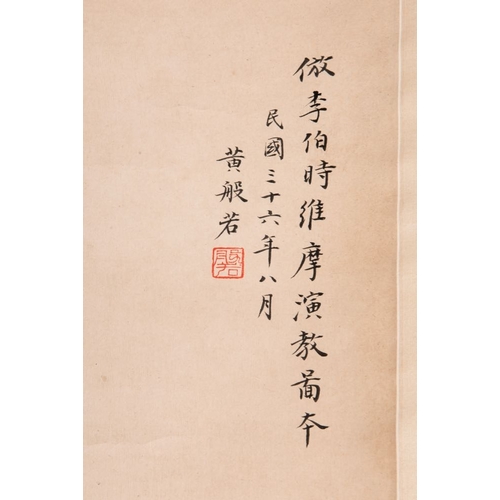 倣李伯時維摩演教啚本
民國三十六年八月
黃般若